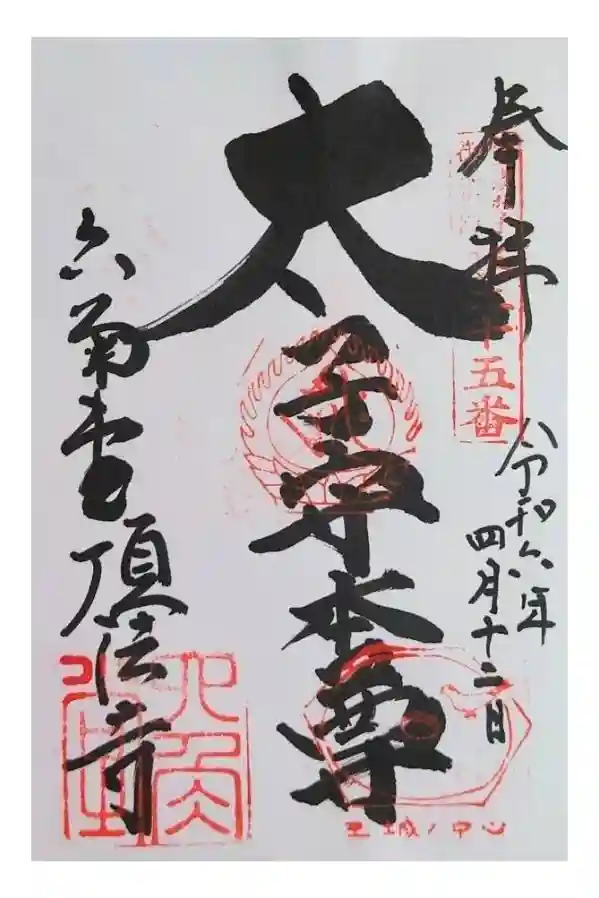 奉拝
十五番
令和六年
四月十二日
太子守本尊
王城ノ中心
六角堂頂法寺